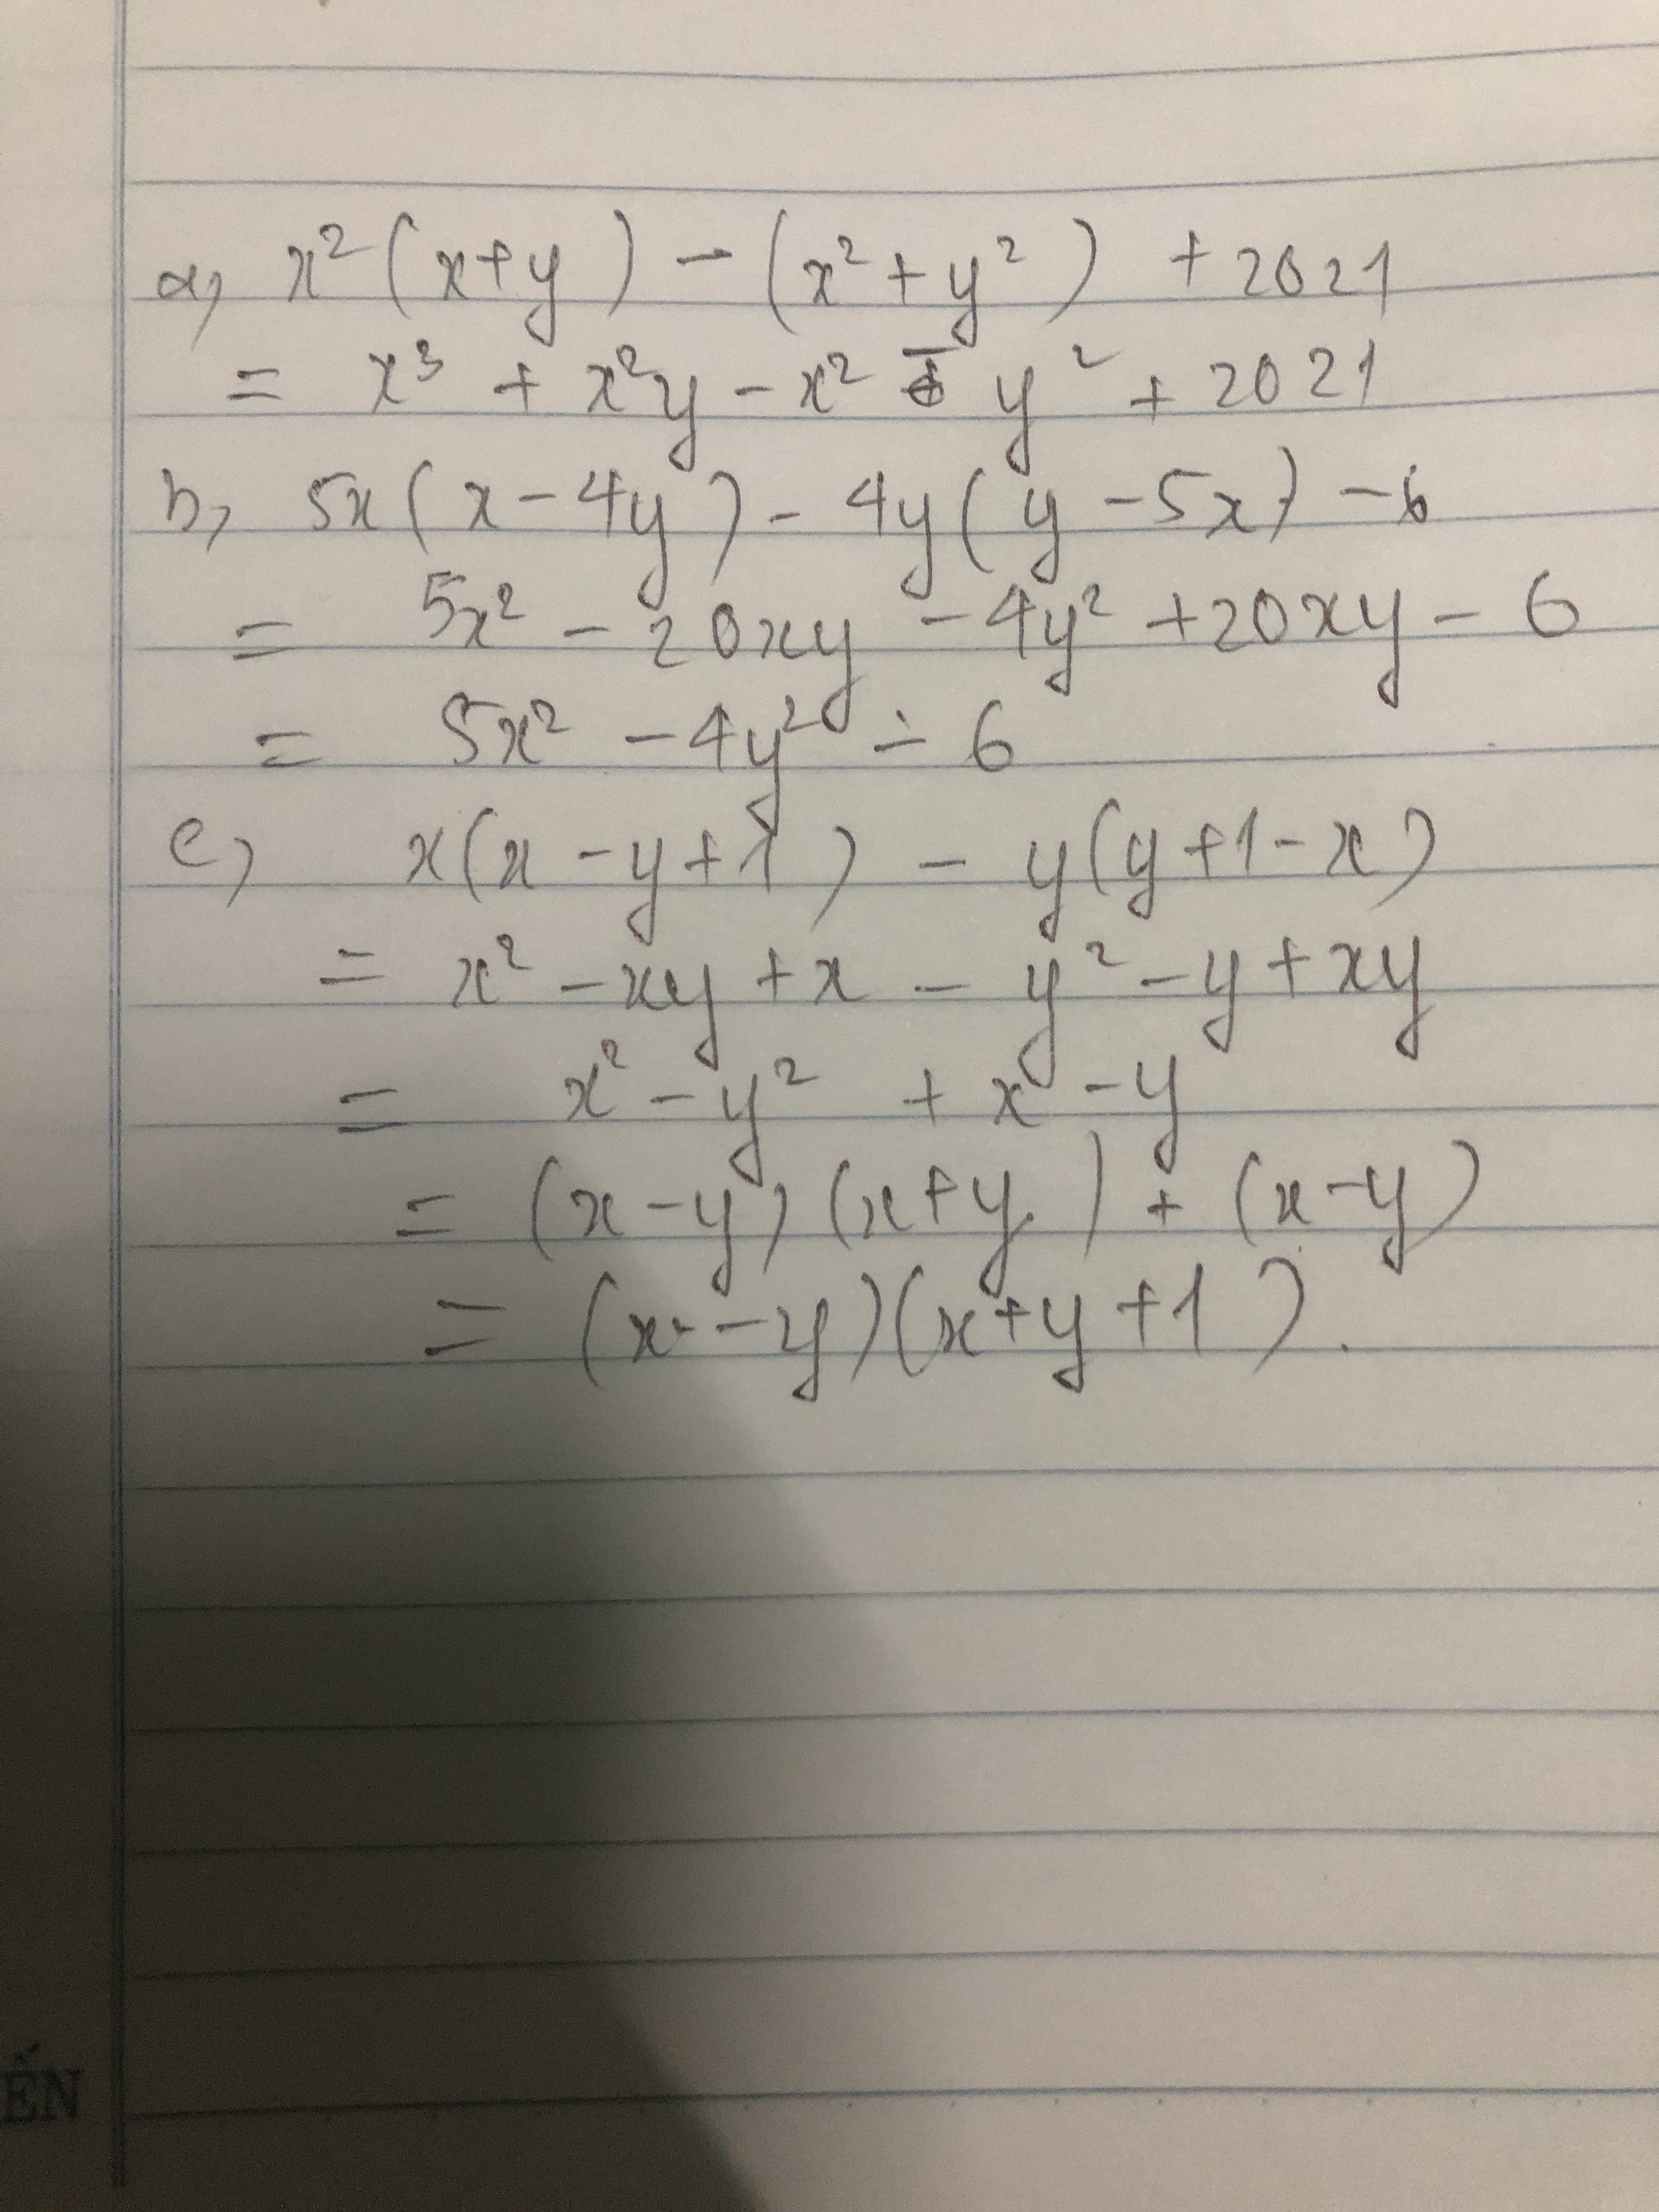 a, x² (x+y) - (x² + y²) + 2021
= x³ + x²y - x² - y² + 2021
b, 5x(x - 4y) - 4y(y - 5x) - 6
= 5x² - 20xy - 4y² + 20xy - 6
= 5x² - 4y² - 6
c, x(x - y + 1) - y(y + 1 - x)
= x² - xy + x - y² - y + xy
= x² - y² + x - y
= (x - y)(x + y) + (x - y)
= (x - y)(x + y + 1).
ẾN